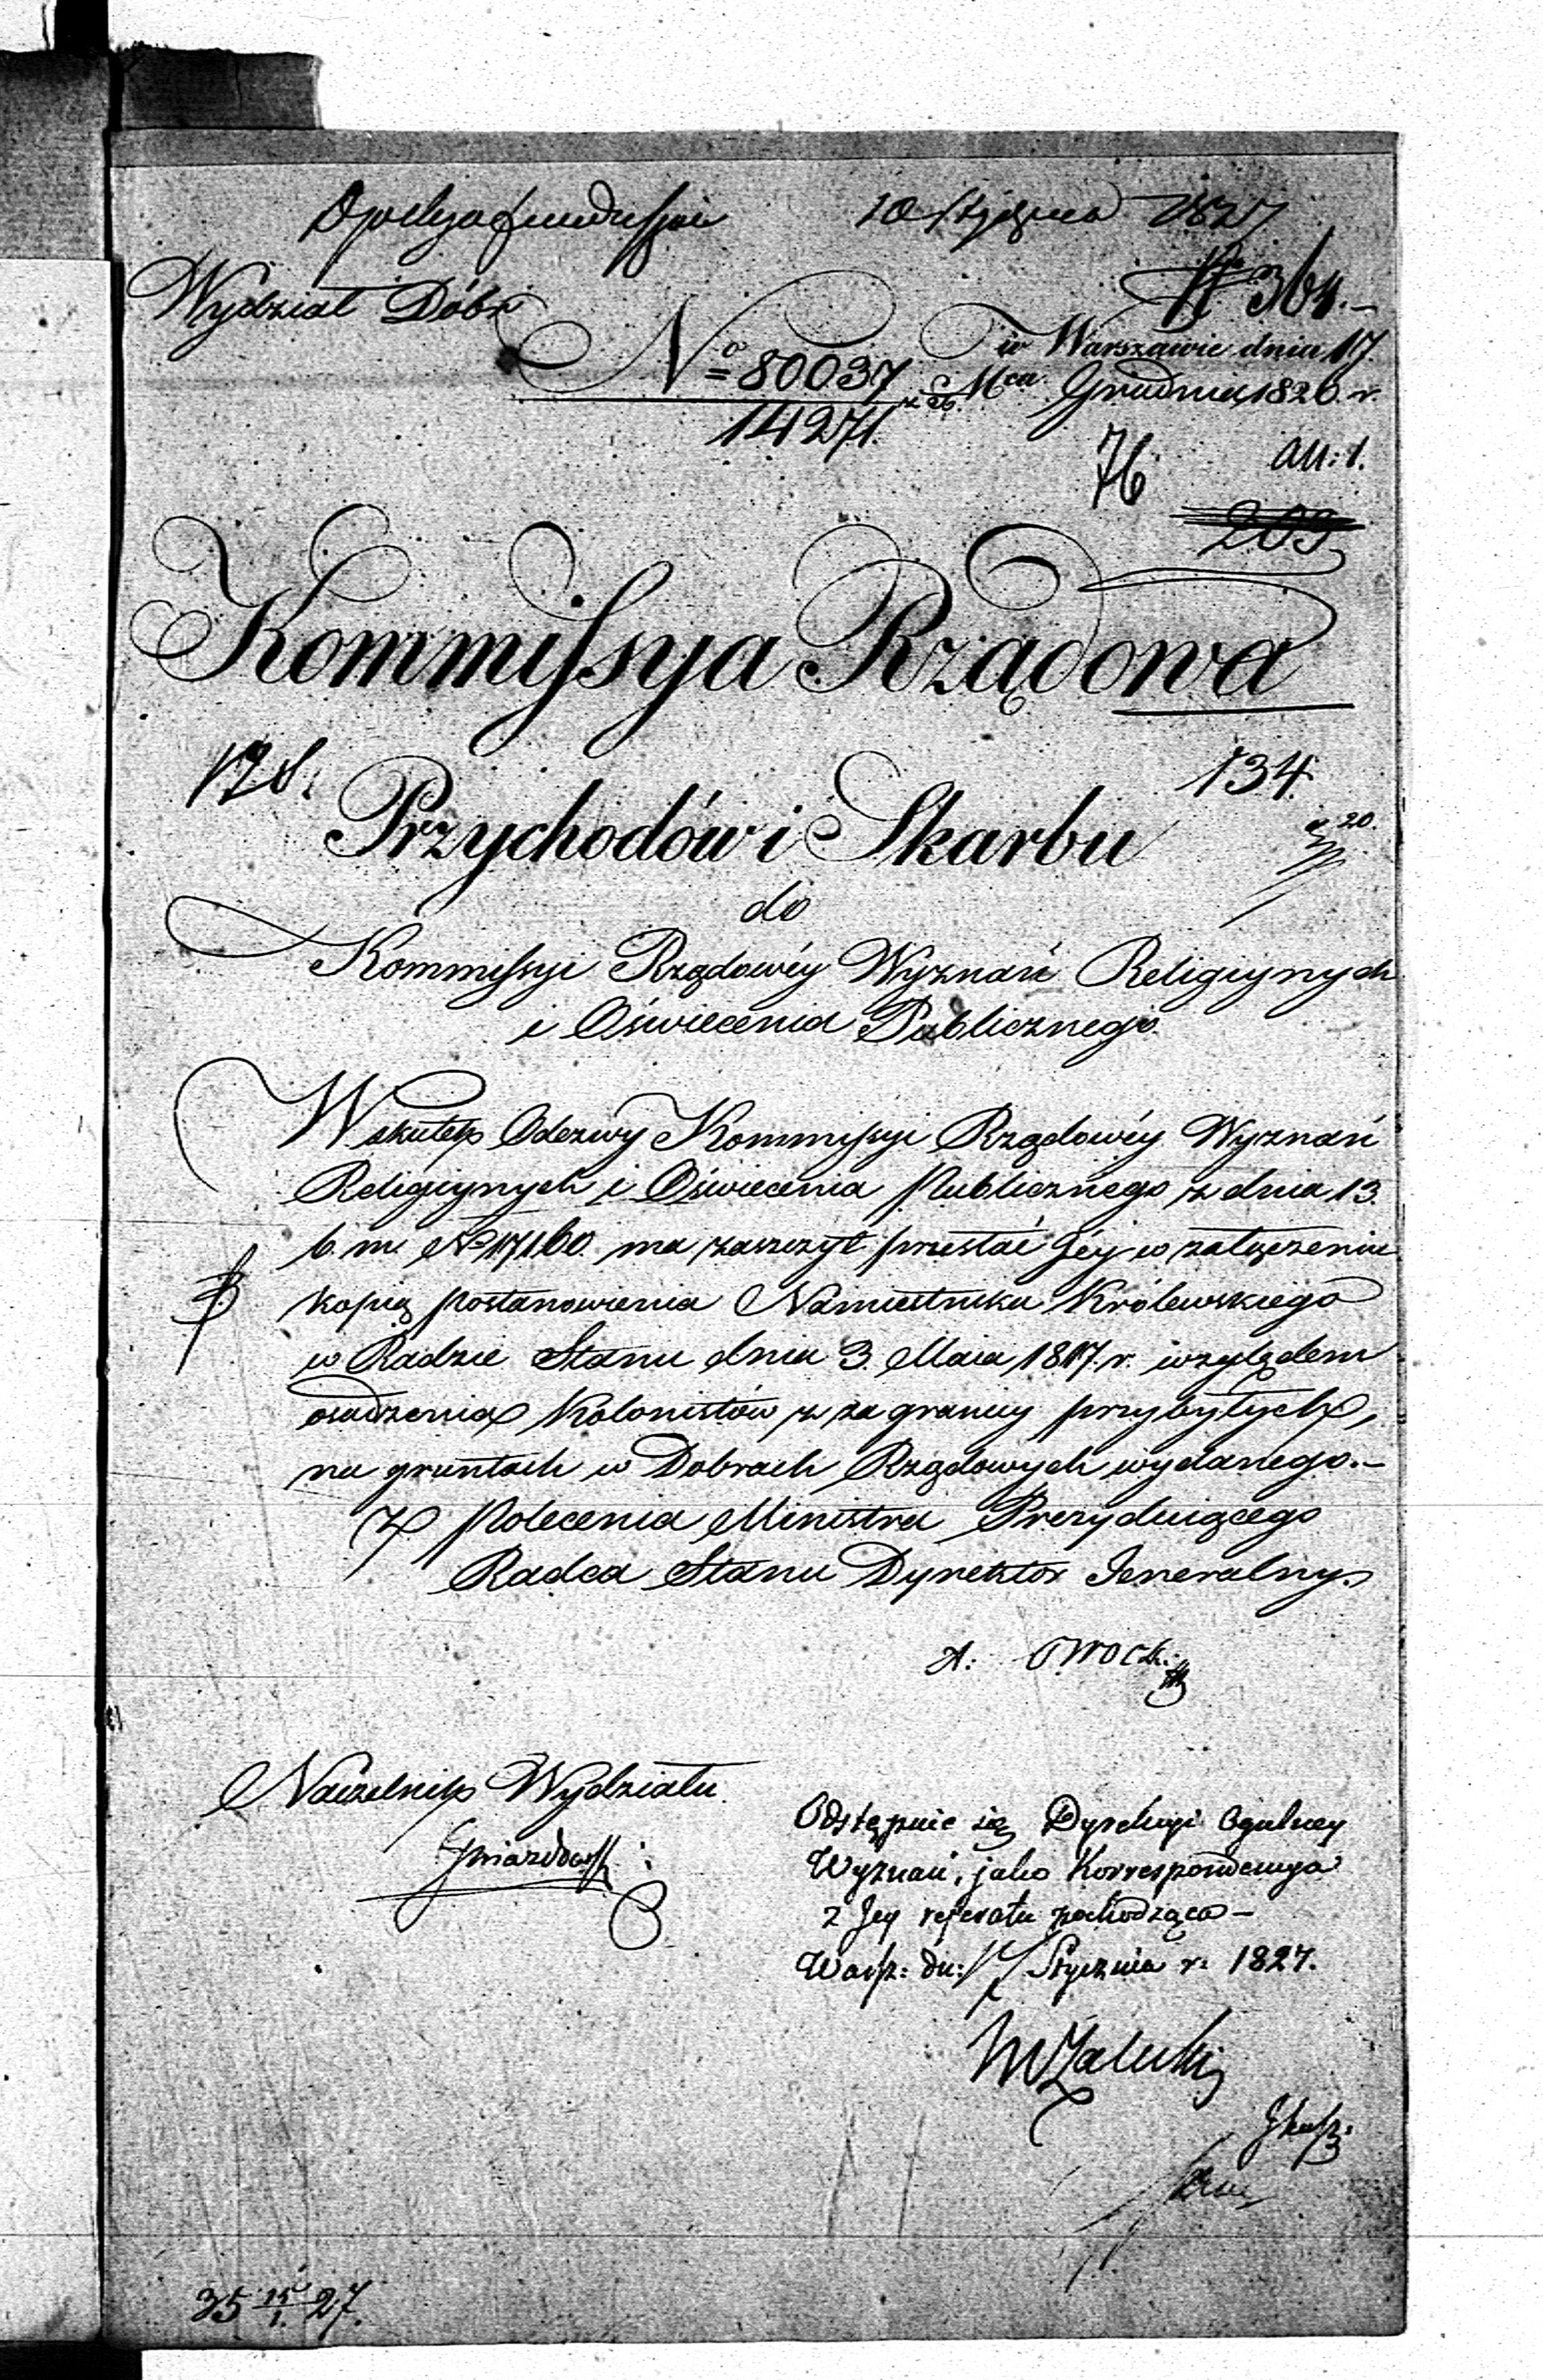 10 Stycznia 1827
Wydział Dóbr
N 364.
No 80037
14271.
w Warszawie dnia 17.
Mca Grudnia 1826 r.
76
All: 1.
209
Kommissya Rządowa
178.
134.
Przychodów i Skarbu
20.
do
Kommissyi Rządowéy Wyznań Religiynych
i Oświecenia Publicznego.
W skutek Odezwy Kommissyi Rządowéy Wyznań
Religiynych i Oświecenia Publicznego z dnia 13.
b. m. No 17160. ma zaszczyt przesłać Jéy w załączeniu
kopią postanowienia Namiestnika Królewskiego
w Radzie Stanu dnia 3. Maia 1817. r. względem
osadzenia Kolonistów z za granicy przybyłych,
na gruntach w Dobrach Rządowych wydanego.-
Z polecenia Ministra Prezyduiącego
Radca Stanu Dyrektor Jeneralny.
Naczelnik Wydziału.
Odstępuie się Dyrekcyi Ogulney
Wyznań, jako Korrespondencya
z Jey referatu pochodząca -
Warsz: dn: 17 Stycznia r. 1827.
MZaluski
35 15/1. 27.